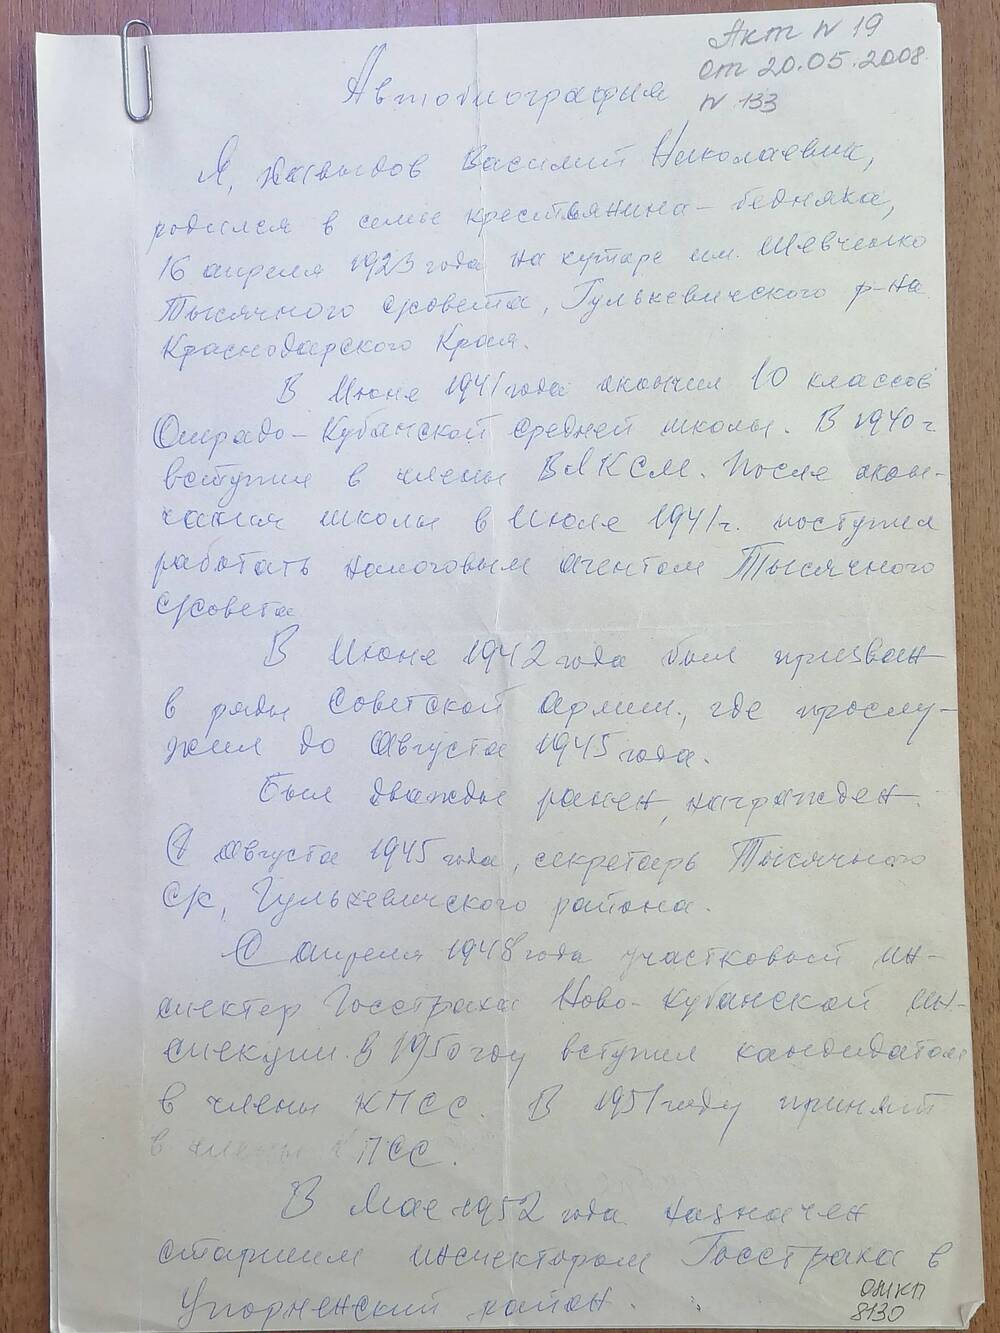 Акт N 19
от 20.05.2008.
N 133
Автобиография
Я, Давыдов Василий Николаевич,
родился в семье крестьянина-бедняка,
16 апреля 1923 года на хуторе им. Шевченко
Тысячного с/совета, Гулькевичского р-на
Краснодарского Края.
В Июне 1941 года окончил 10 классов
Отрадо-Кубанской средней школы. В 1940 г
вступил в члены ВЛКСМ. После окон-
чания школы в Июле 1941 г. поступил
работать налоговым агентом Тысячного
с/совета
В Июне 1942 года был призван
в ряды Советской Армии, где прослу-
жил до Августа 1945 года.
Был дважды ранен, награжден.
С Августа 1945 года, секретарь Тысячного
С/с, Гулькевичского района.
С апреля 1948 года участковый ин-
спектор Госстраха Ново-Кубанской ин-
спекции. В 1950 году вступил кандидатом
в члены КПСС. В 1951 году принят
в члены КПСС.
В Мае 1952 года назначен
старшим инспектором Госстраха в
Упорненский район.
ОМКП
8130